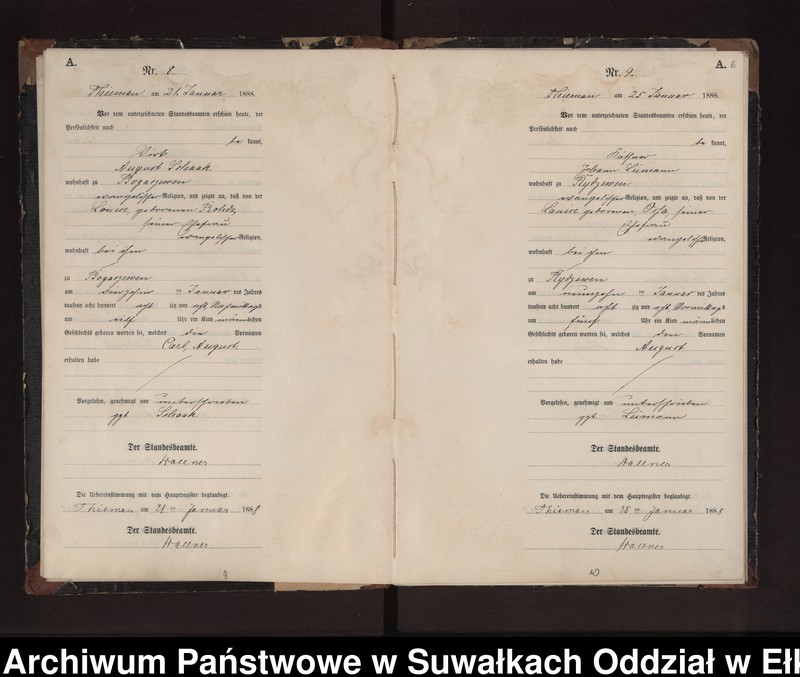 A.
Nr. 8.
Thieman am 21. Januar 1888.
Vor dem unterzeichneten Standesbeamten erschien heute, der
Persönlichkeit nach
be kannt,
Wirt
August Schaak
wohnhaft zu Bogaszewen
evangelischer Religion, und zeigte an, daß von der
Louise, geborenen
seiner Ehefrau
evangelischer Religion,
wohnhaft bei ihm
zu Bogaszewen
am ten Januar des Jahres
tausend acht hundert acht zig und acht Nachmittags
um Uhr ein Kind männlichen
Geschlechts geboren worden sei, welches die Vornamen
Carl, August
erhalten habe
Vorgelesen, genehmigt und unterschrieben
ggt. Schaak
Der Standesbeamte.
Wallner
Die Uebereinstimmung mit dem Hauptregister beglaubigt.
Thieman am 21 ten Januar 1888
Der Standesbeamte.
Wallner
9
A. 6
Nr. 9.
Thieman am 25 Januar 1888.
Vor dem unterzeichneten Standesbeamten erschien heute, der
Persönlichkeit nach
be kannt,
Käthner
Johann Leimann
wohnhaft zu Rydzewen
evangelischer Religion, und zeigte an, daß von der
Louise geborenen seiner
Ehefrau
evangelisch Religion,
wohnhaft bei ihm
zu Rydzewen
am neunzehn ten Januar des Jahres
tausend acht hundert acht zig und acht Vormittags
um fünf Uhr ein Kind männlichen
Geschlechts geboren worden sei, welches den Vornamen
August
erhalten habe
Vorgelesen, genehmigt und unterschrieben
ggt. Leimann
Der Standesbeamte.
Wallner
Die Uebereinstimmung mit dem Hauptregister beglaubigt.
Thieman am 25 ten Januar 1888
Der Standesbeamte.
Wallner
10
Archiwum Państwowe w Suwałkach Oddział w Ełk